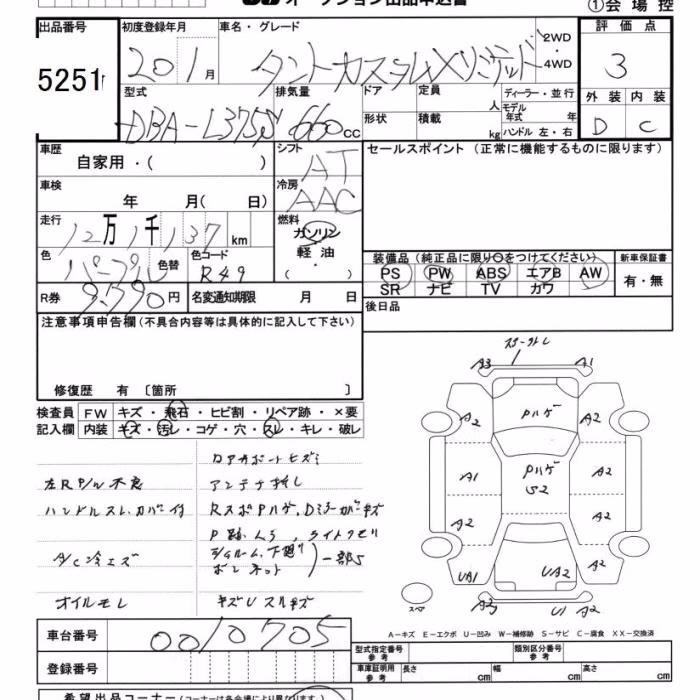 オークション出品申込書
①会場控
出品番号 初度登録年月 車名・グレード 2WD ・ 4WD 評価点
5251 20 1月 タントカスタムXリミテッド 3
型式 排気量 ドア 定員 人 ディーラー・並行 外装 内装
DBA-L375S 660cc 形状 積載 kg モデル年式 年 ハンドル 左・右 D C
車歴 自家用・( ) シフト AT セールスポイント (正常に機能するものに限ります)
車検 年 月( 日) 冷房 AAC
走行 12万1千137km 燃料 ガソリン
軽油
・( )
色 パープル 色替 色コード R49
装備品 (純正品に限り○をつけてください) 新車保証書
PS PW ABS エアB AW 有・無
SR ナビ TV カワ
R券 9,590円 名変通知期限 月 日 後日品
注意事項申告欄 (不具合内容等は具体的に記入して下さい)
修復歴 有 〔箇所 〕
検査員 FW キズ・飛石・ヒビ割・リペア跡・×要
記入欄 内装 キズ・汚レ・コゲ・穴・スレ・キレ・破レ
左RP/W不良 アンテナ無し
ハンドルスレ、カバー付 RスポPハゲ、Dミラーカバーキズ
A/C冷エズ ボンネット 一部S
オイルモレ キズUスリキズ
A3 A1
A2 Pハゲ A2
A1 Pハゲ S2 A2
A2 A2
UA1 UA2 A2
スペア A3 U1 A2
A-キズ E-エクボ U-凹み W-補修跡 S-サビ C-腐食 XX-交換済
車台番号 0010705
型式指定番号 参考 類別区分番号 参考
登録番号 車庫証明用 参考 長さ cm 幅 cm 高さ cm
希望出品コーナー